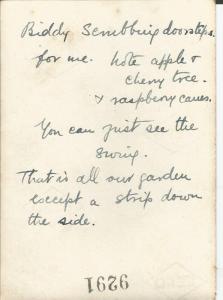 Biddy Scrubbing doorsteps
for me. Note apple &
cherry tree.
& raspberry canes.
You can just see the
swing.
That is all our garden
except a strip down
the side.
9291